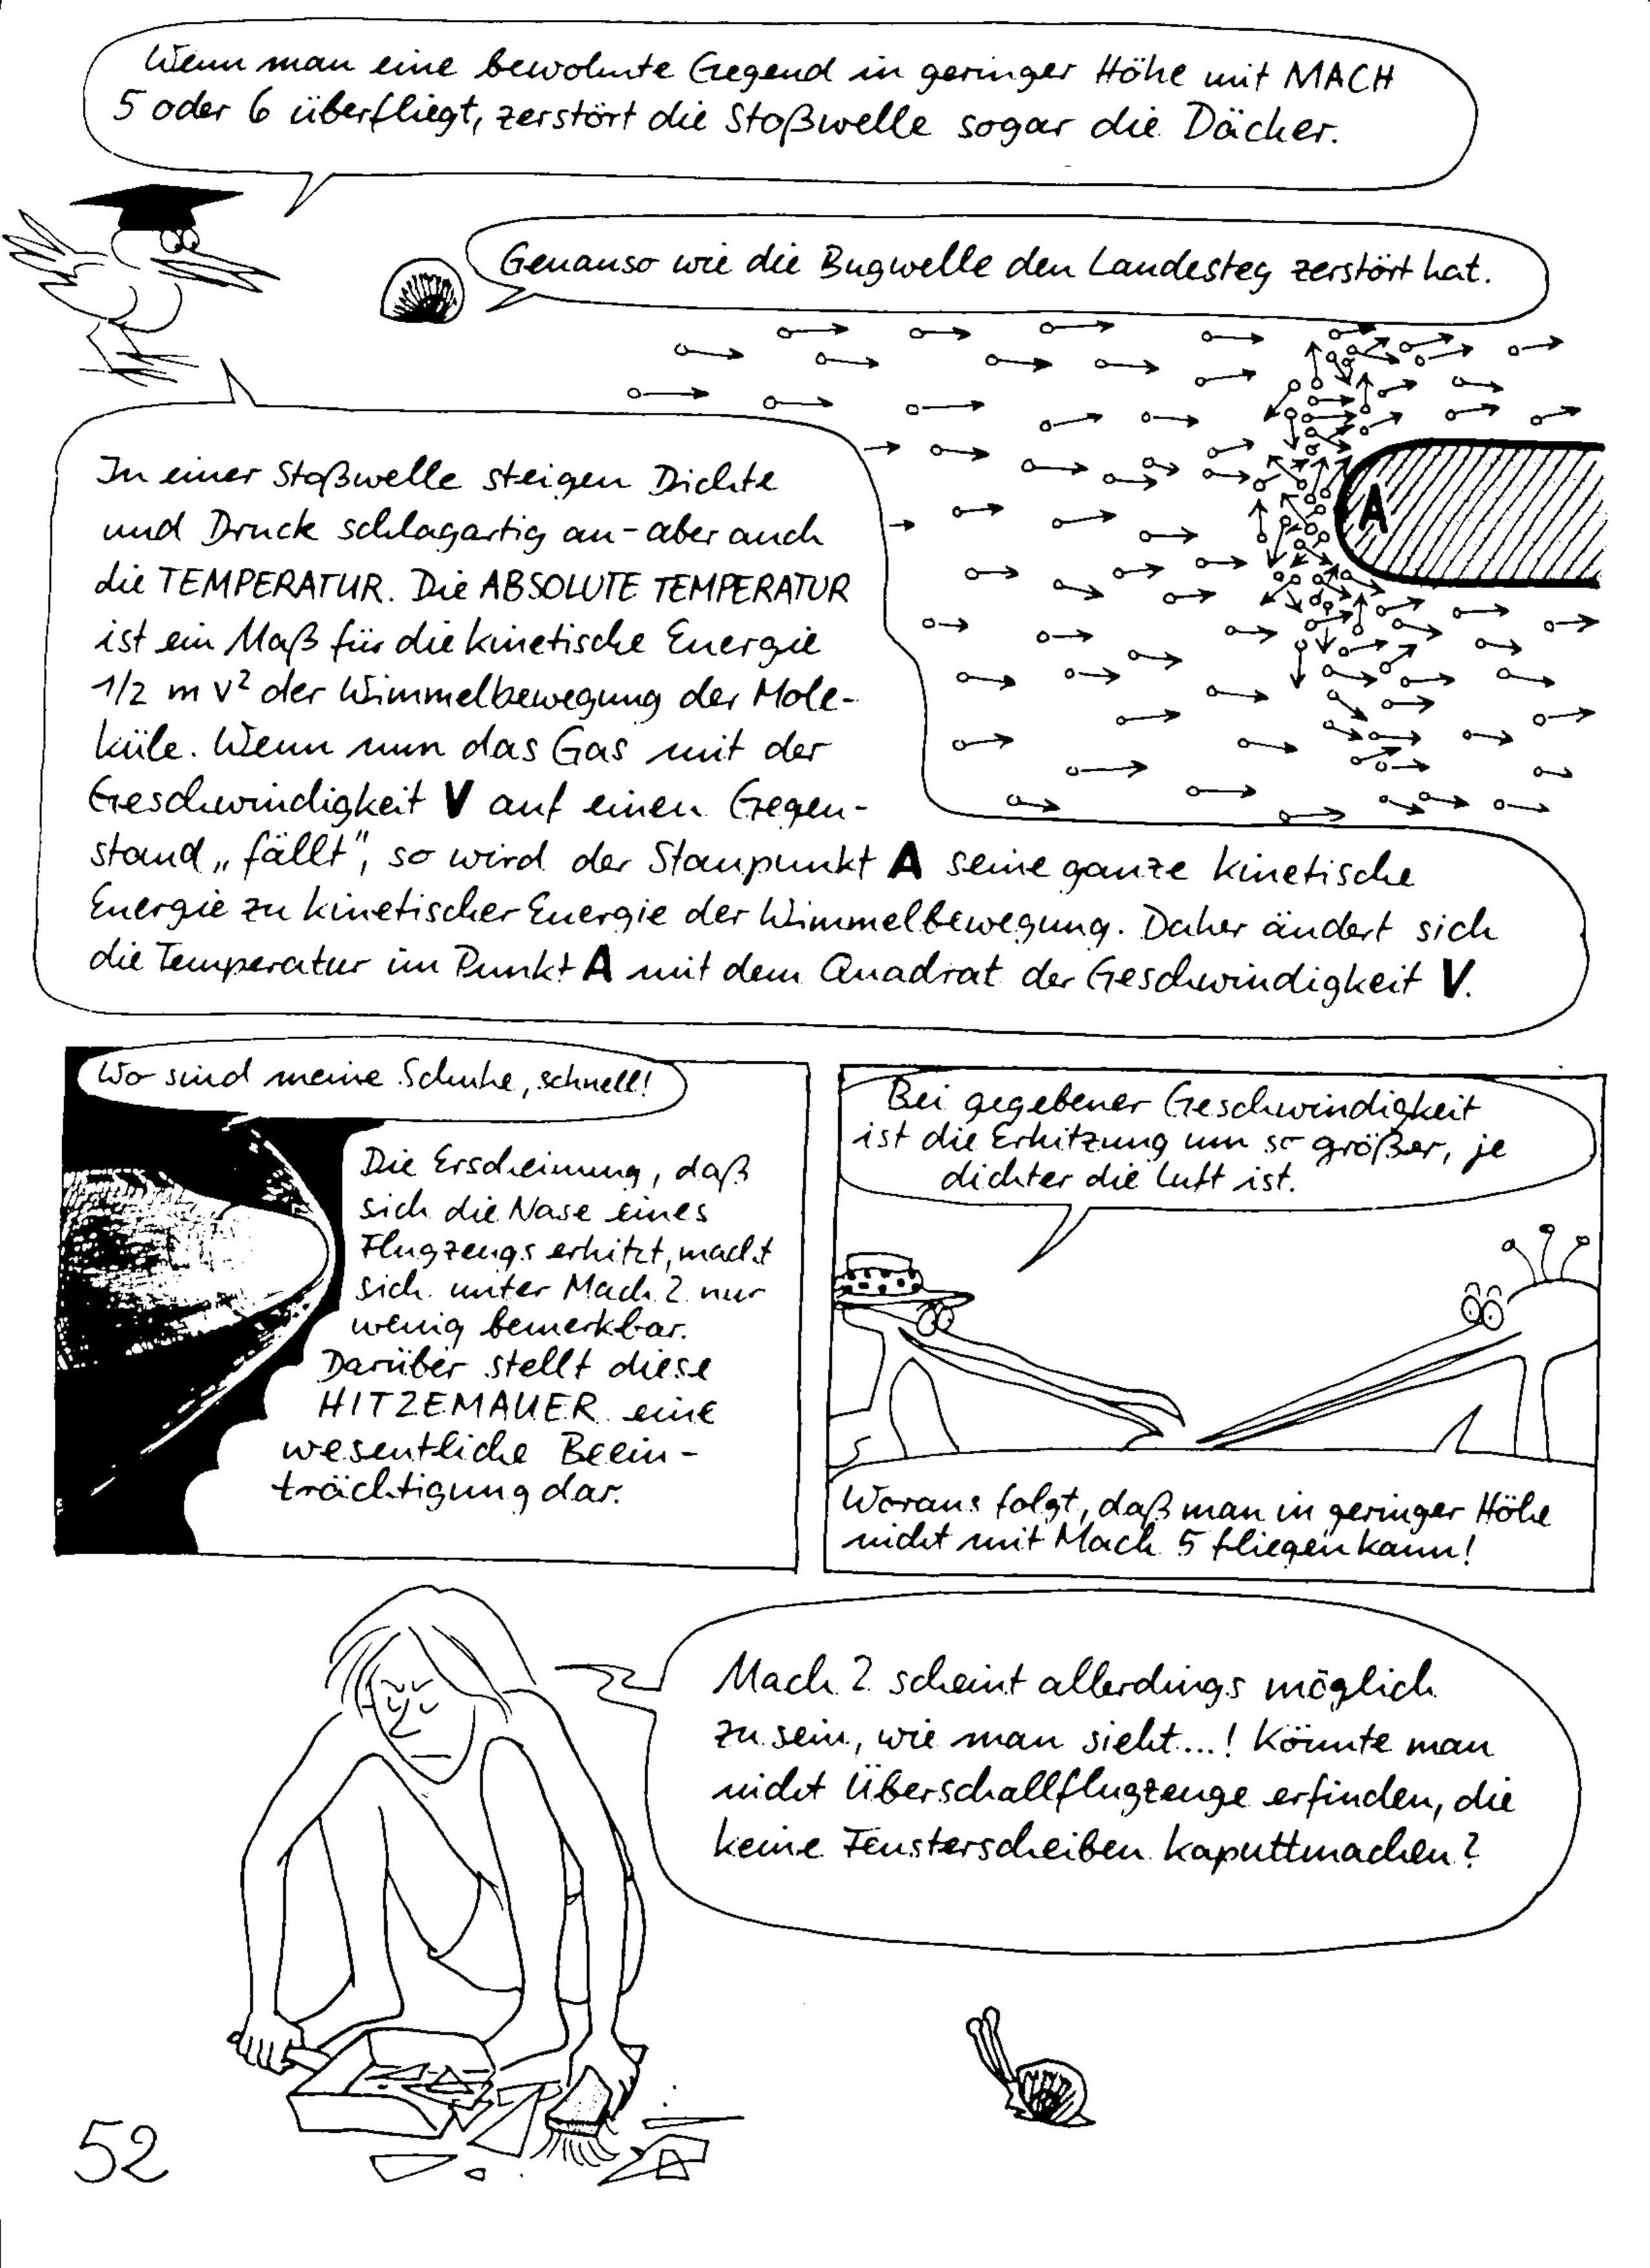 Wenn man eine bewohnte Gegend in geringer Höhe mit MACH
5 oder 6 überfliegt, zerstört die Stoßwelle sogar die Dächer.
Genauso wie die Bugwelle den Landesteg zerstört hat.
In einer Stoßwelle steigen Dichte
und Druck schlagartig an - aber auch
die TEMPERATUR. Die ABSOLUTE TEMPERATUR
ist ein Maß für die kinetische Energie
1/2 m v² der Wimmelbewegung der Mole-
küle. Wenn nun das Gas mit der
Geschwindigkeit V auf einen Gegen-
stand „fällt", so wird der Staupunkt A seine ganze kinetische
Energie zu kinetischer Energie der Wimmelbewegung. Daher ändert sich
die Temperatur im Punkt A mit dem Quadrat der Geschwindigkeit V.
A
Wo sind meine Schuhe, schnell!
Die Erscheinung, daß
sich die Nase eines
Flugzeugs erhitzt, macht
sich unter Mach 2 nur
wenig bemerkbar.
Darüber stellt diese
HITZEMAUER eine
wesentliche Beein-
trächtigung dar.
Bei gegebener Geschwindigkeit
ist die Erhitzung um so größer, je
dichter die Luft ist.
Woraus folgt, daß man in geringer Höhe
nicht mit Mach 5 fliegen kann!
Mach 2 scheint allerdings möglich
zu sein, wie man sieht...! Könnte man
nicht Überschallflugzeuge erfinden, die
keine Fensterscheiben kaputtmachen?
52